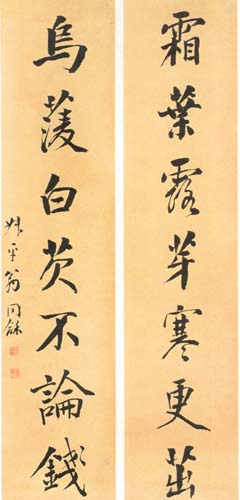 霜葉露芽寒更茁
烏菱白芡不論錢
叔平翁同龢